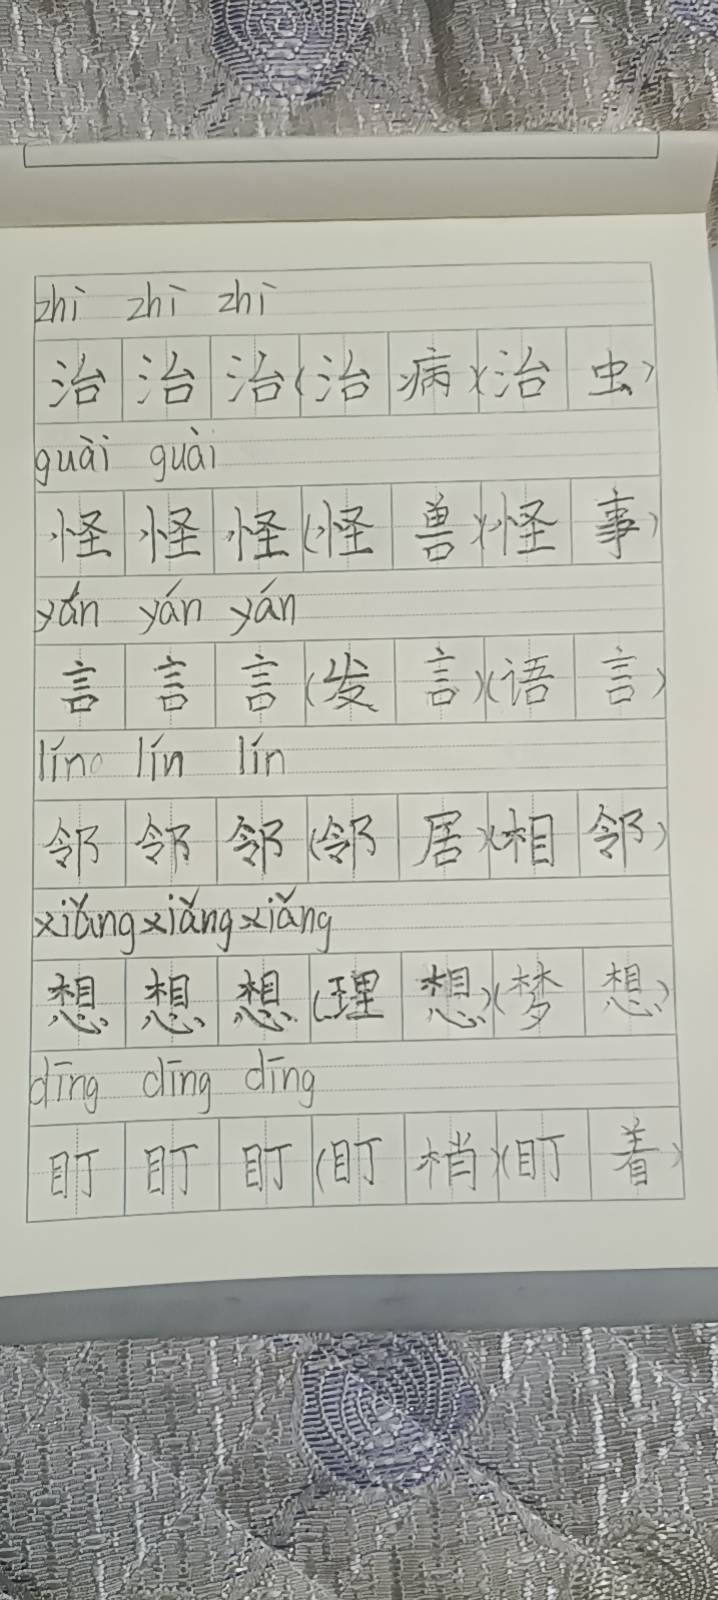 zhì zhì zhì
治治治(治病)(治虫)
guài guài
怪怪怪(怪兽)(怪事)
yán yán yán
言言言(发言)(语言)
lín lín lín
邻邻邻(邻居)(相邻)
xiǎng xiǎng xiǎng
想想想(理想)(梦想)
dīng dīng dīng
盯盯盯(盯梢)(盯着)